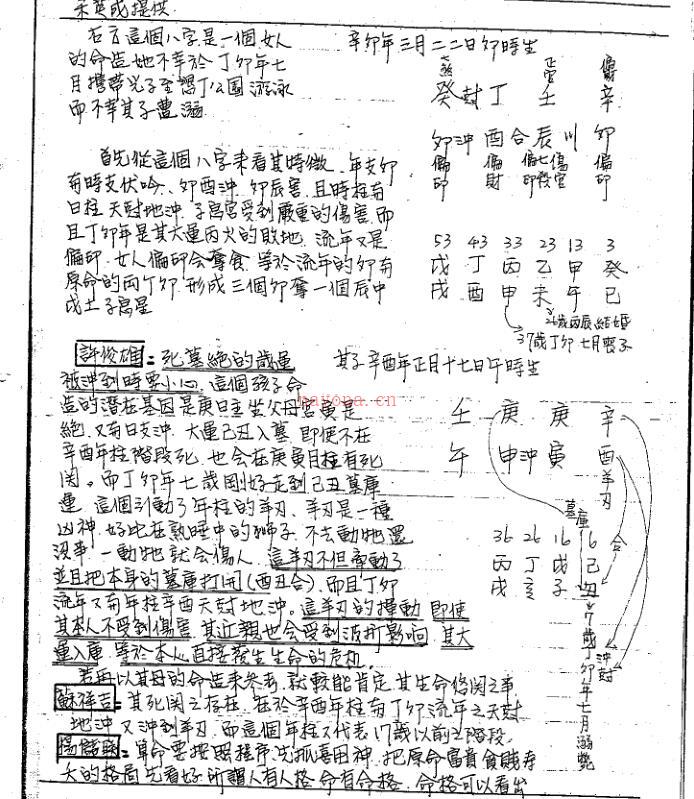 宋英成提供
右方這個八字是一個女人
的命造她不幸於丁卯年七
月攜帶兒子至 公園游泳
而不幸其子遭溺
辛卯年三月二二日卯時生
七殺 正官 偏
癸 封 丁 壬 辛
卯 沖 酉 合 辰 川 卯
偏印 偏財 偏印七殺傷官 偏印
首先從這個八字來看其特徵、年支卯
有時支伏吟、卯酉沖、卯辰害、且時柱有
日柱天尅地沖、子息宮受到嚴重的傷害、而
且丁卯年是其大運丙火的敗地、流年又是
偏印、女人偏印會奪食、等於流年的卯有
原命的兩丁卯、形成三個卯奪一個辰中
戊土子息星
53 43 33 23 13 3
戊 丁 丙 乙 甲 癸
戌 酉 申 未 午 巳
26歲丙辰結婚
37歲丁卯七月喪子
許俊雄：死墓絕的歲運
被沖到時要小心、這個孩子命
造的潛在基因是庚日主坐父母宮寅是
絕、又有日支沖、大運己丑入墓、即便不在
辛酉年柱階段死、也會在庚寅月柱有死
関。而丁卯年七歲剛好走到己丑墓庫
運、這個引動了年柱的羊刃、羊刃是一種
凶神、好比在熟睡中的獅子、不去動牠還
沒事、一動牠就會傷人、這羊刃不但牽動了
並且把本身的墓庫打開(酉丑合)、而且丁卯
流年又有年柱辛酉天尅地沖。這羊刃的撞動、即使
其本人不受到傷害、其近親也會受到波折影响、其大
運入庫、等於本人直接發生生命的危机、
其子辛酉年正月十七日午時生
壬 庚 庚 辛
午 申 沖 寅 酉 羊刃
墓庫
36 26 16 6 合
丙 丁 戊 己
戌 亥 子 丑
7歲丁卯年七月溺斃
沖尅
若再以其母的命造來參考、就較能肯定其生命攸関之事
蘇祥吉：其死関之存在、在於辛酉年柱有丁卯流年之天尅
地沖、又沖到羊刃、而這個年柱又代表17歲以前之階段、
楊 ：算命要按照程序、先抓喜用神、把原命富貴貧賤壽
夭的格局先看好、所謂人有人格、命有命格、命格可以看出
nayona.cn